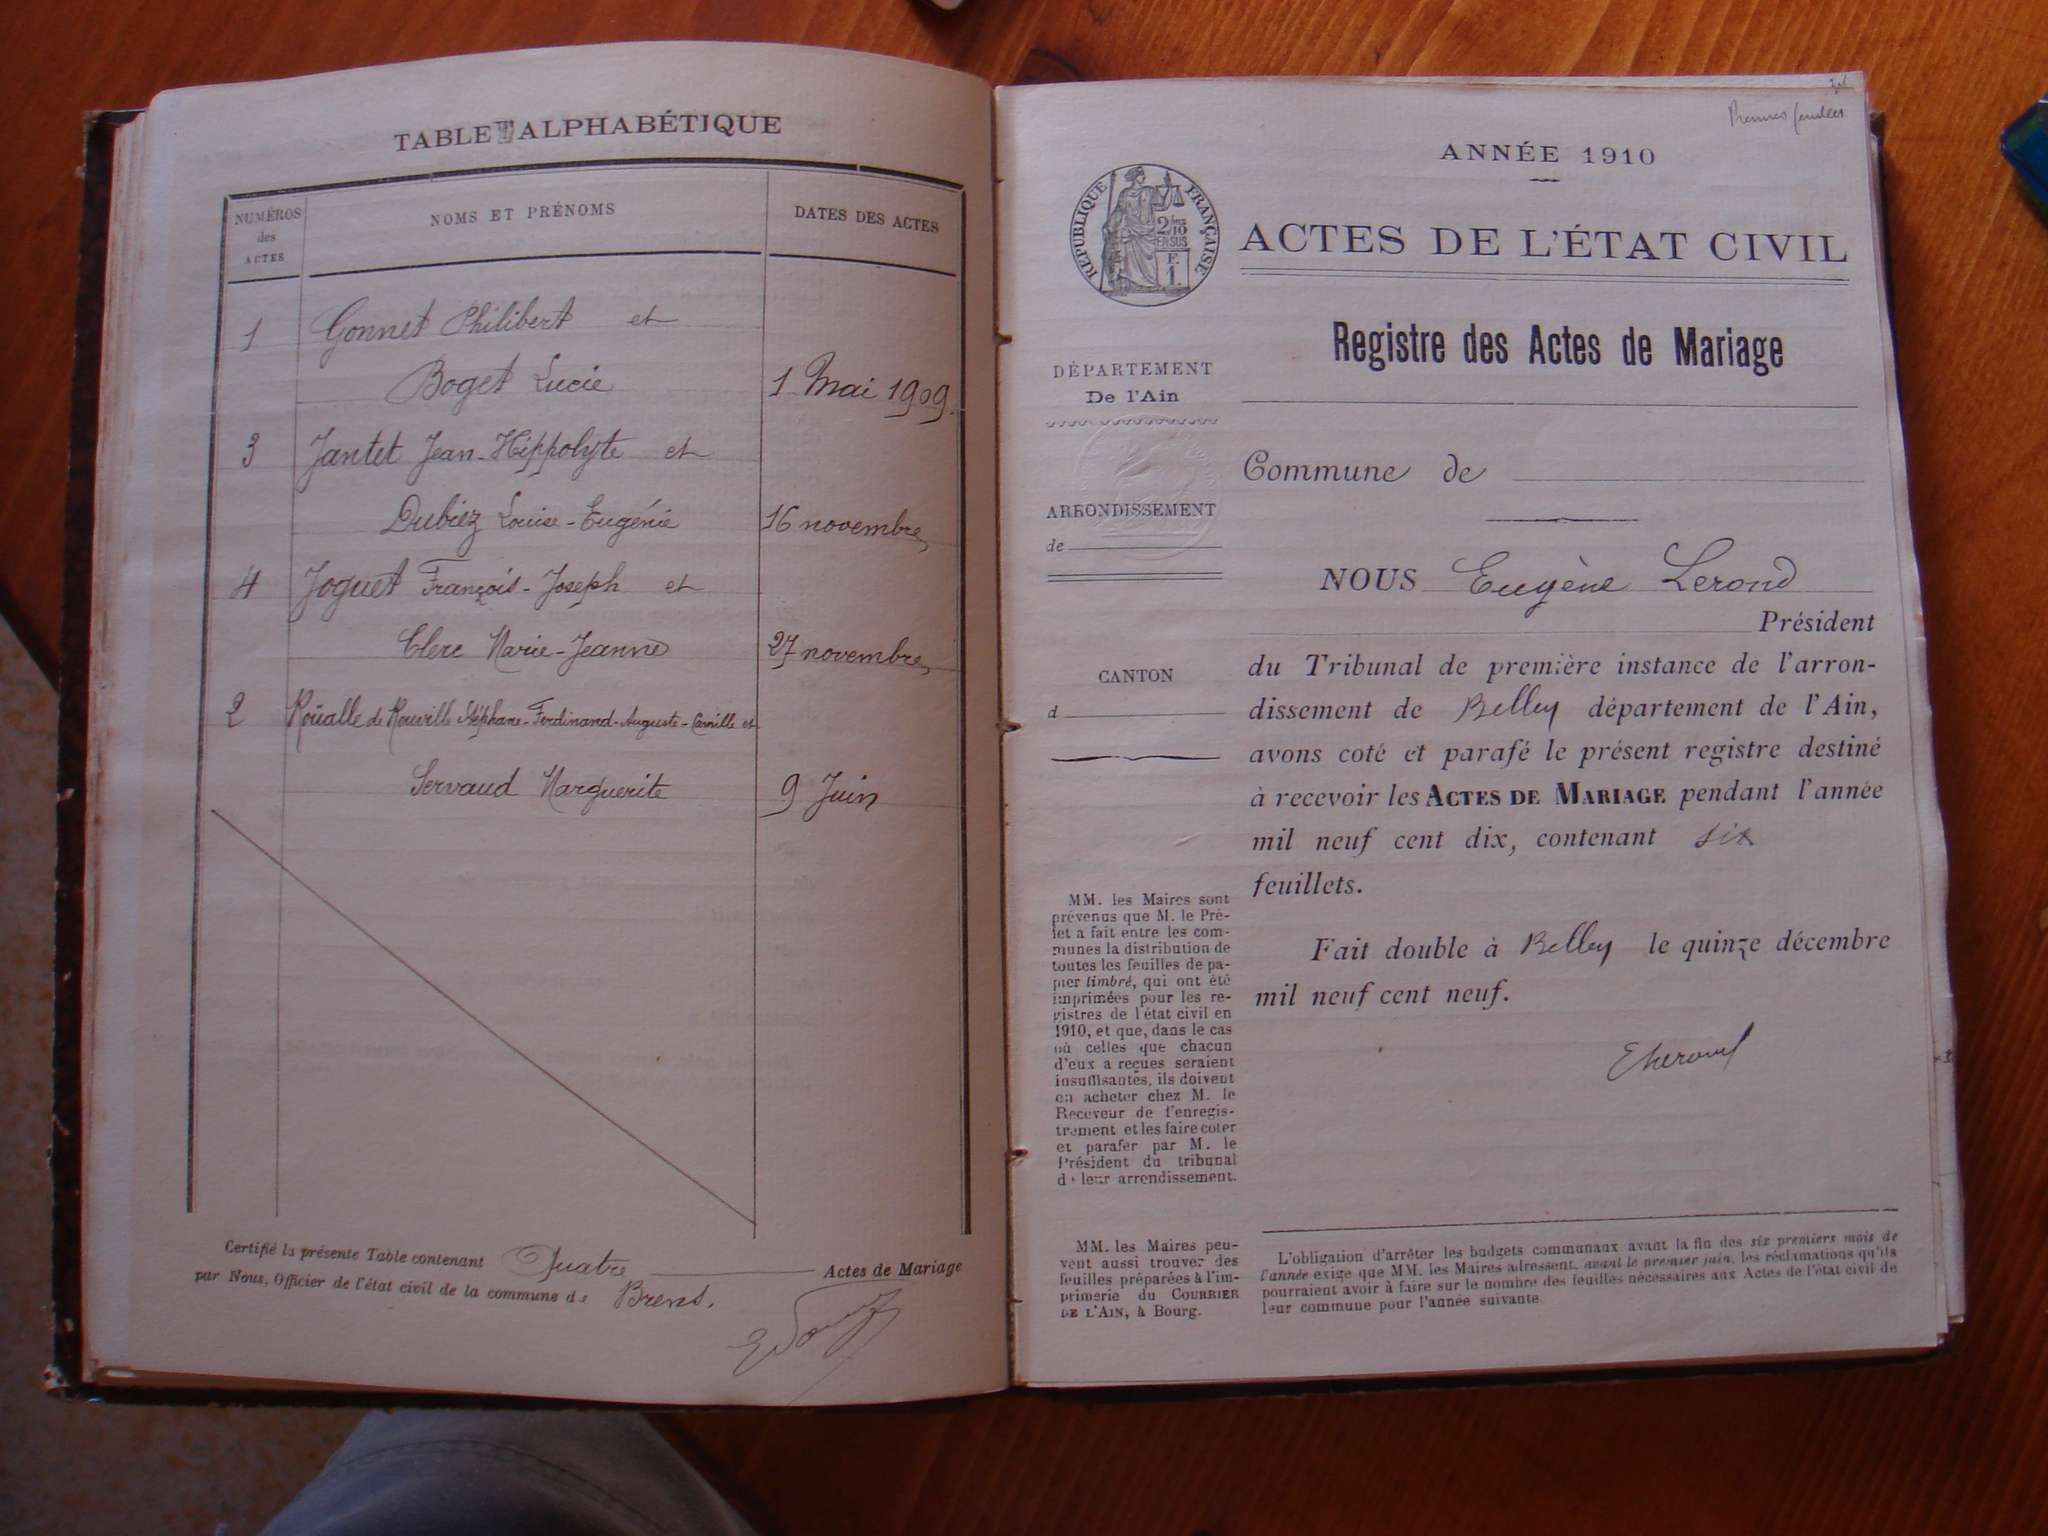 TABLE ALPHABÉTIQUE
NUMÉROS des ACTES
NOMS ET PRÉNOMS
DATES DES ACTES
1 Gonnet Philibert et
Boget Lucie 1 Mai 1909.
3 Jantet Jean-Hippolyte et
Dubiez Louise-Eugénie 16 novembre,
4 Joguet François-Joseph et
Clerc Marie-Jeanne 27 novembre,
2 Roüalle de Rouville Stéphane-Ferdinand-Auguste-Camille et
Servaud Marguerite 9 Juin
Certifié la présente Table contenant Quatre Actes de Mariage
par Nous, Officier de l'état civil de la commune de Brens.
ANNÉE 1910
RÉPUBLIQUE FRANÇAISE
2/10
EN SUS
F.
1.
ACTES DE L'ÉTAT CIVIL
Registre des Actes de Mariage
DÉPARTEMENT
De l'Ain
Commune de
ARRONDISSEMENT
de
NOUS Eugène Lerond
Président
CANTON
d
du Tribunal de première instance de l'arron-
dissement de Belley département de l'Ain,
avons coté et parafé le présent registre destiné
à recevoir les ACTES DE MARIAGE pendant l'année
mil neuf cent dix, contenant six
feuillets.
Fait double à Belley le quinze décembre
mil neuf cent neuf.
MM. les Maires sont
prévenus que M. le Pré-
fet a fait entre les com-
munes la distribution de
toutes les feuilles de pa-
pier timbré, qui ont été
imprimées pour les re-
gistres de l'état civil en
1910, et que, dans le cas
où celles que chacun
d'eux a reçues seraient
insuffisantes, ils doivent
en acheter chez M. le
Receveur de l'enregis-
trement et les faire coter
et parafer par M. le
Président du tribunal
de leur arrondissement.
MM. les Maires peu-
vent aussi trouver des
feuilles préparées à l'im-
primerie du COURRIER
DE L'AIN, à Bourg.
L'obligation d'arrêter les budgets communaux avant la fin des six premiers mois de
l'année exige que MM. les Maires adressent, avant le premier juin, les réclamations qu'ils
pourraient avoir à faire sur le nombre des feuilles nécessaires aux Actes de l'état civil de
leur commune pour l'année suivante